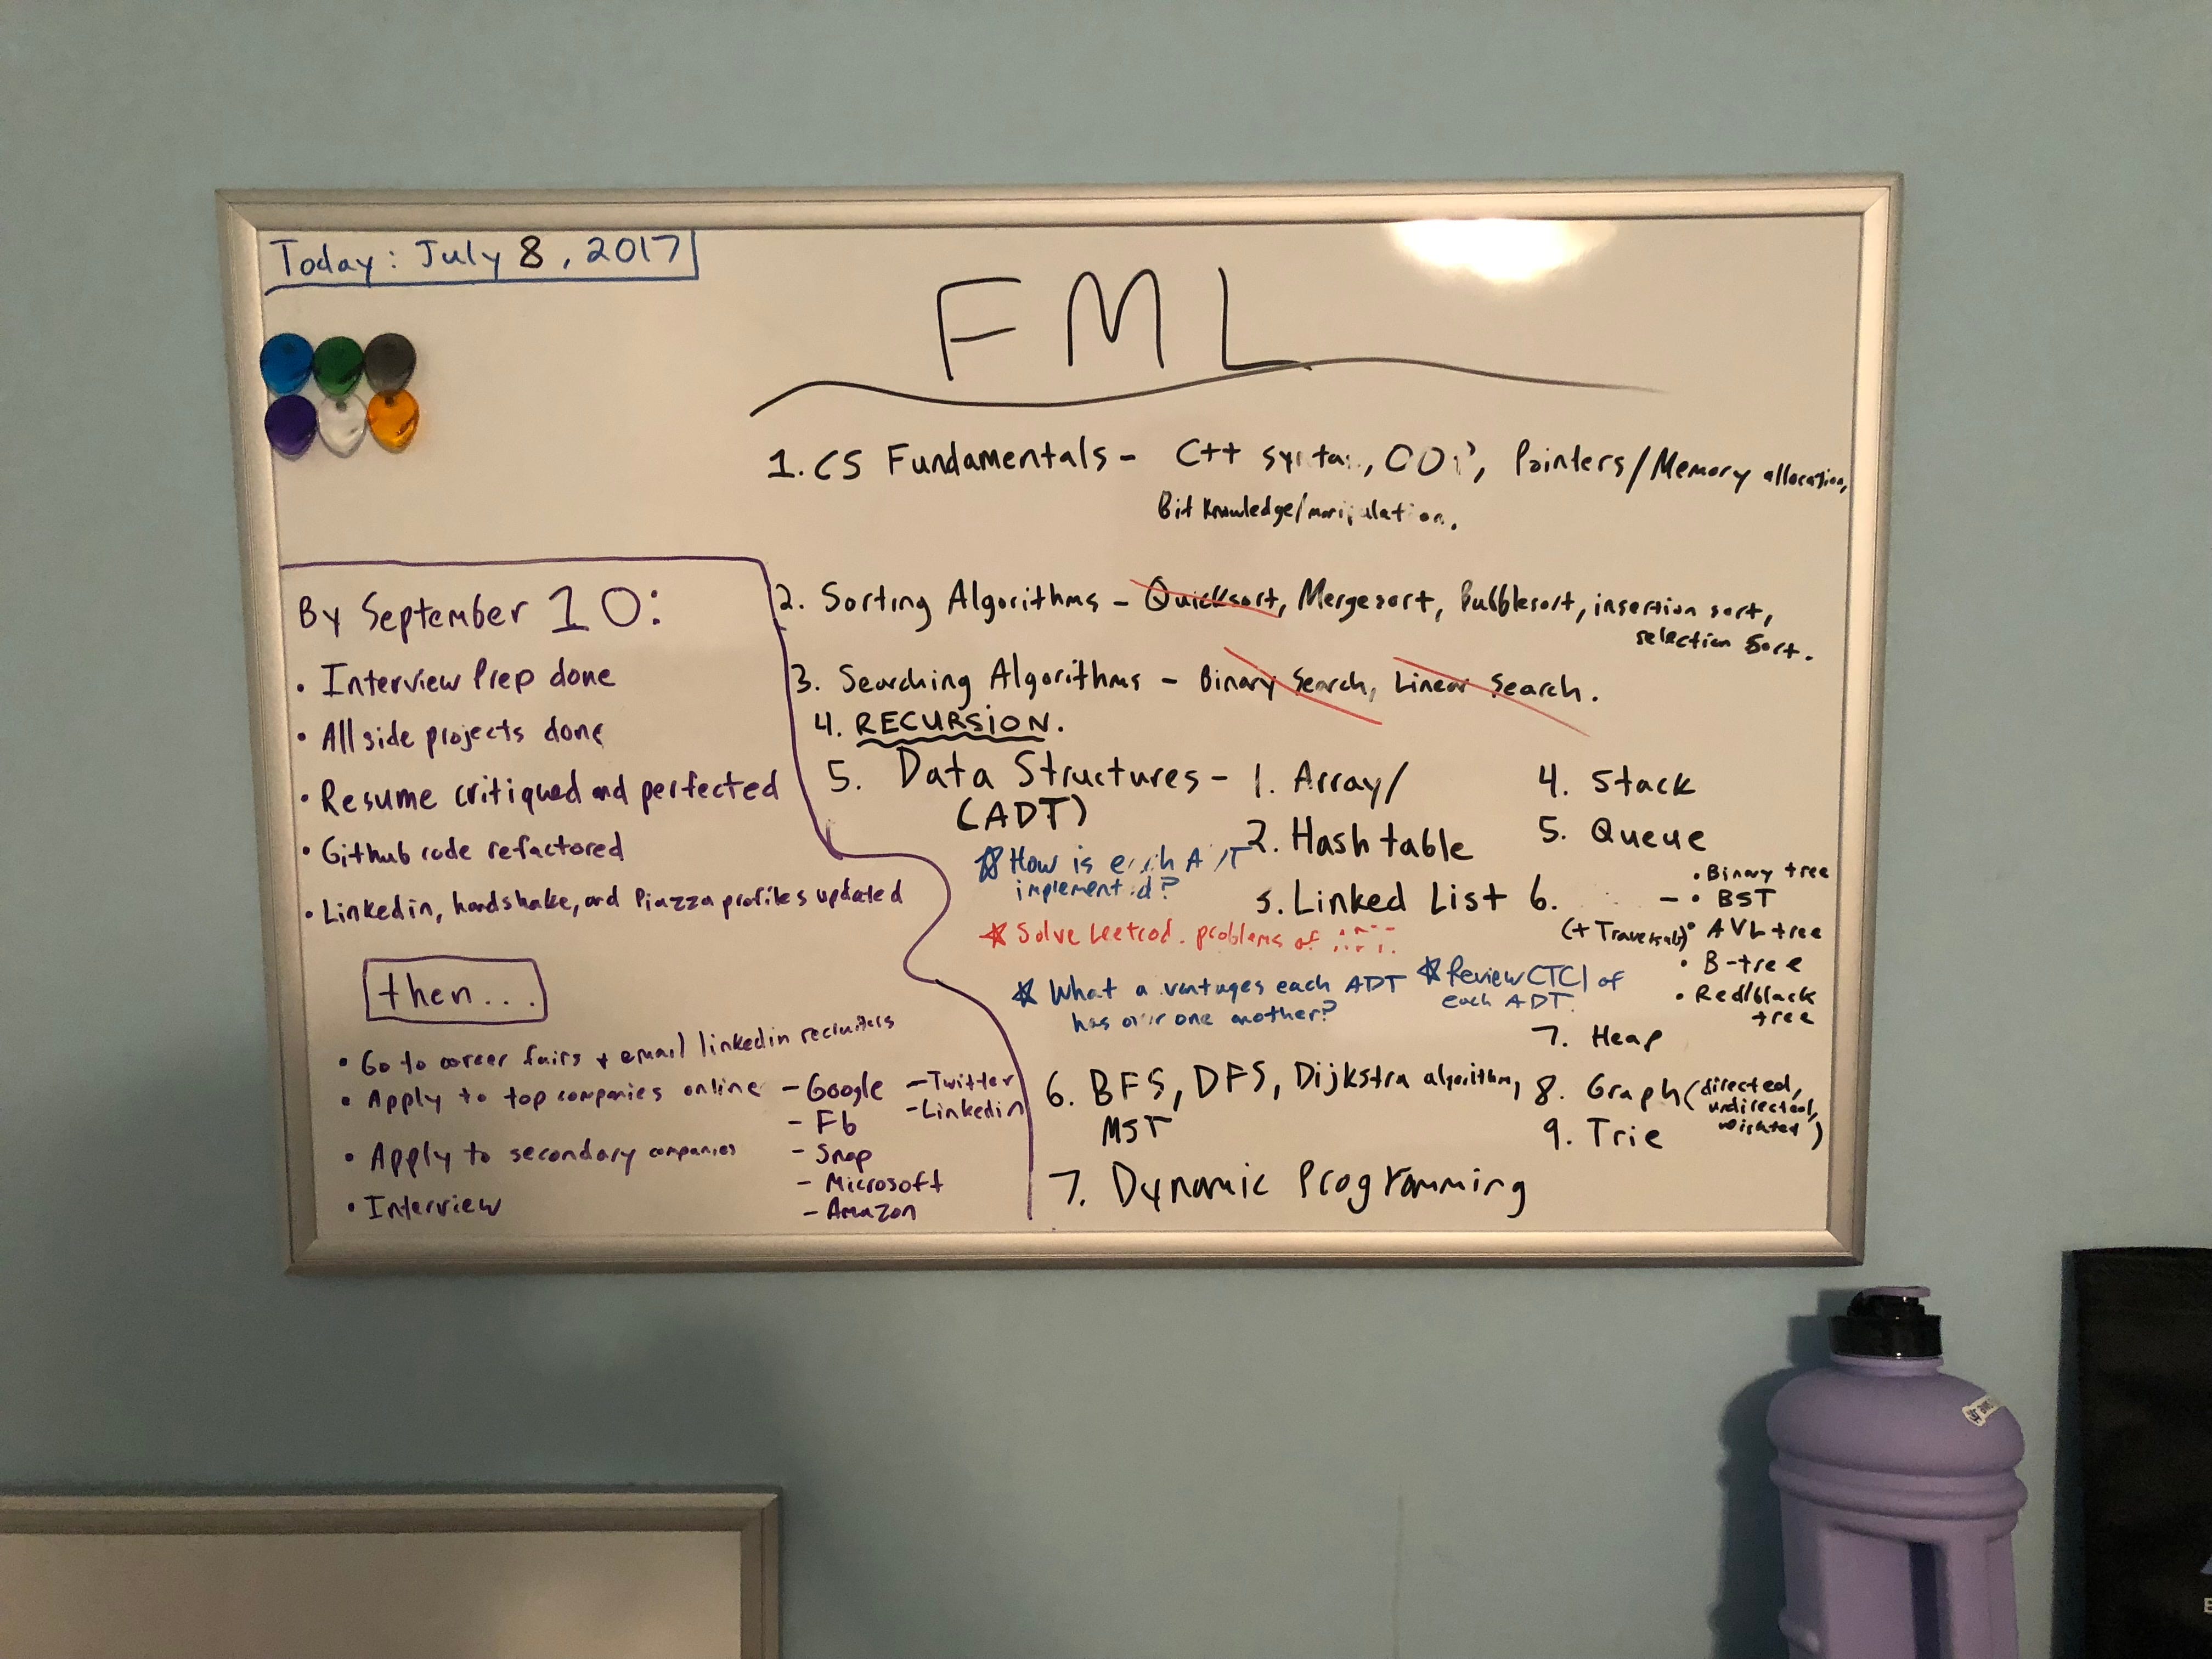 Today: July 8, 2017
FML
1. CS Fundamentals - C++ Pointers/Memory allocation,
Bit Knowledge/
2. Sorting Algorithms - Quicksort, Mergesort, Bubblesort, insertion sort,
selection sort.
3. Searching Algorithms - Binary Search, Linear Search.
4. RECURSION.
5. Data Structures -
(ADT)
1. Array/
2. Hash table
3. Linked List
4. Stack
5. Queue
6.
(+ Traversals)
- • Binary tree
• BST
• AVL tree
• B-tree
• Red/black
tree
7. Heap
8. Graph (directed,
undirected,
weighted)
9. Trie
☆ How is
☆ Solve problems of
☆ What each ADT
has one another?
☆ Review CTCI of
each ADT.
6. BFS, DFS, Dijkstra algorithm,
MST
7. Dynamic Programming
By September 10:
• Interview Prep done
• All side projects done
• Resume critiqued and perfected
• Github code refactored
• Linkedin, handshake, and Piazza profiles updated
then...
• Go to career fairs + email linkedin recruiters
• Apply to top companies online
- Google
- Fb
- Snap
- Microsoft
- Amazon
- Twitter
- Linkedin
• Apply to secondary companies
• Interview